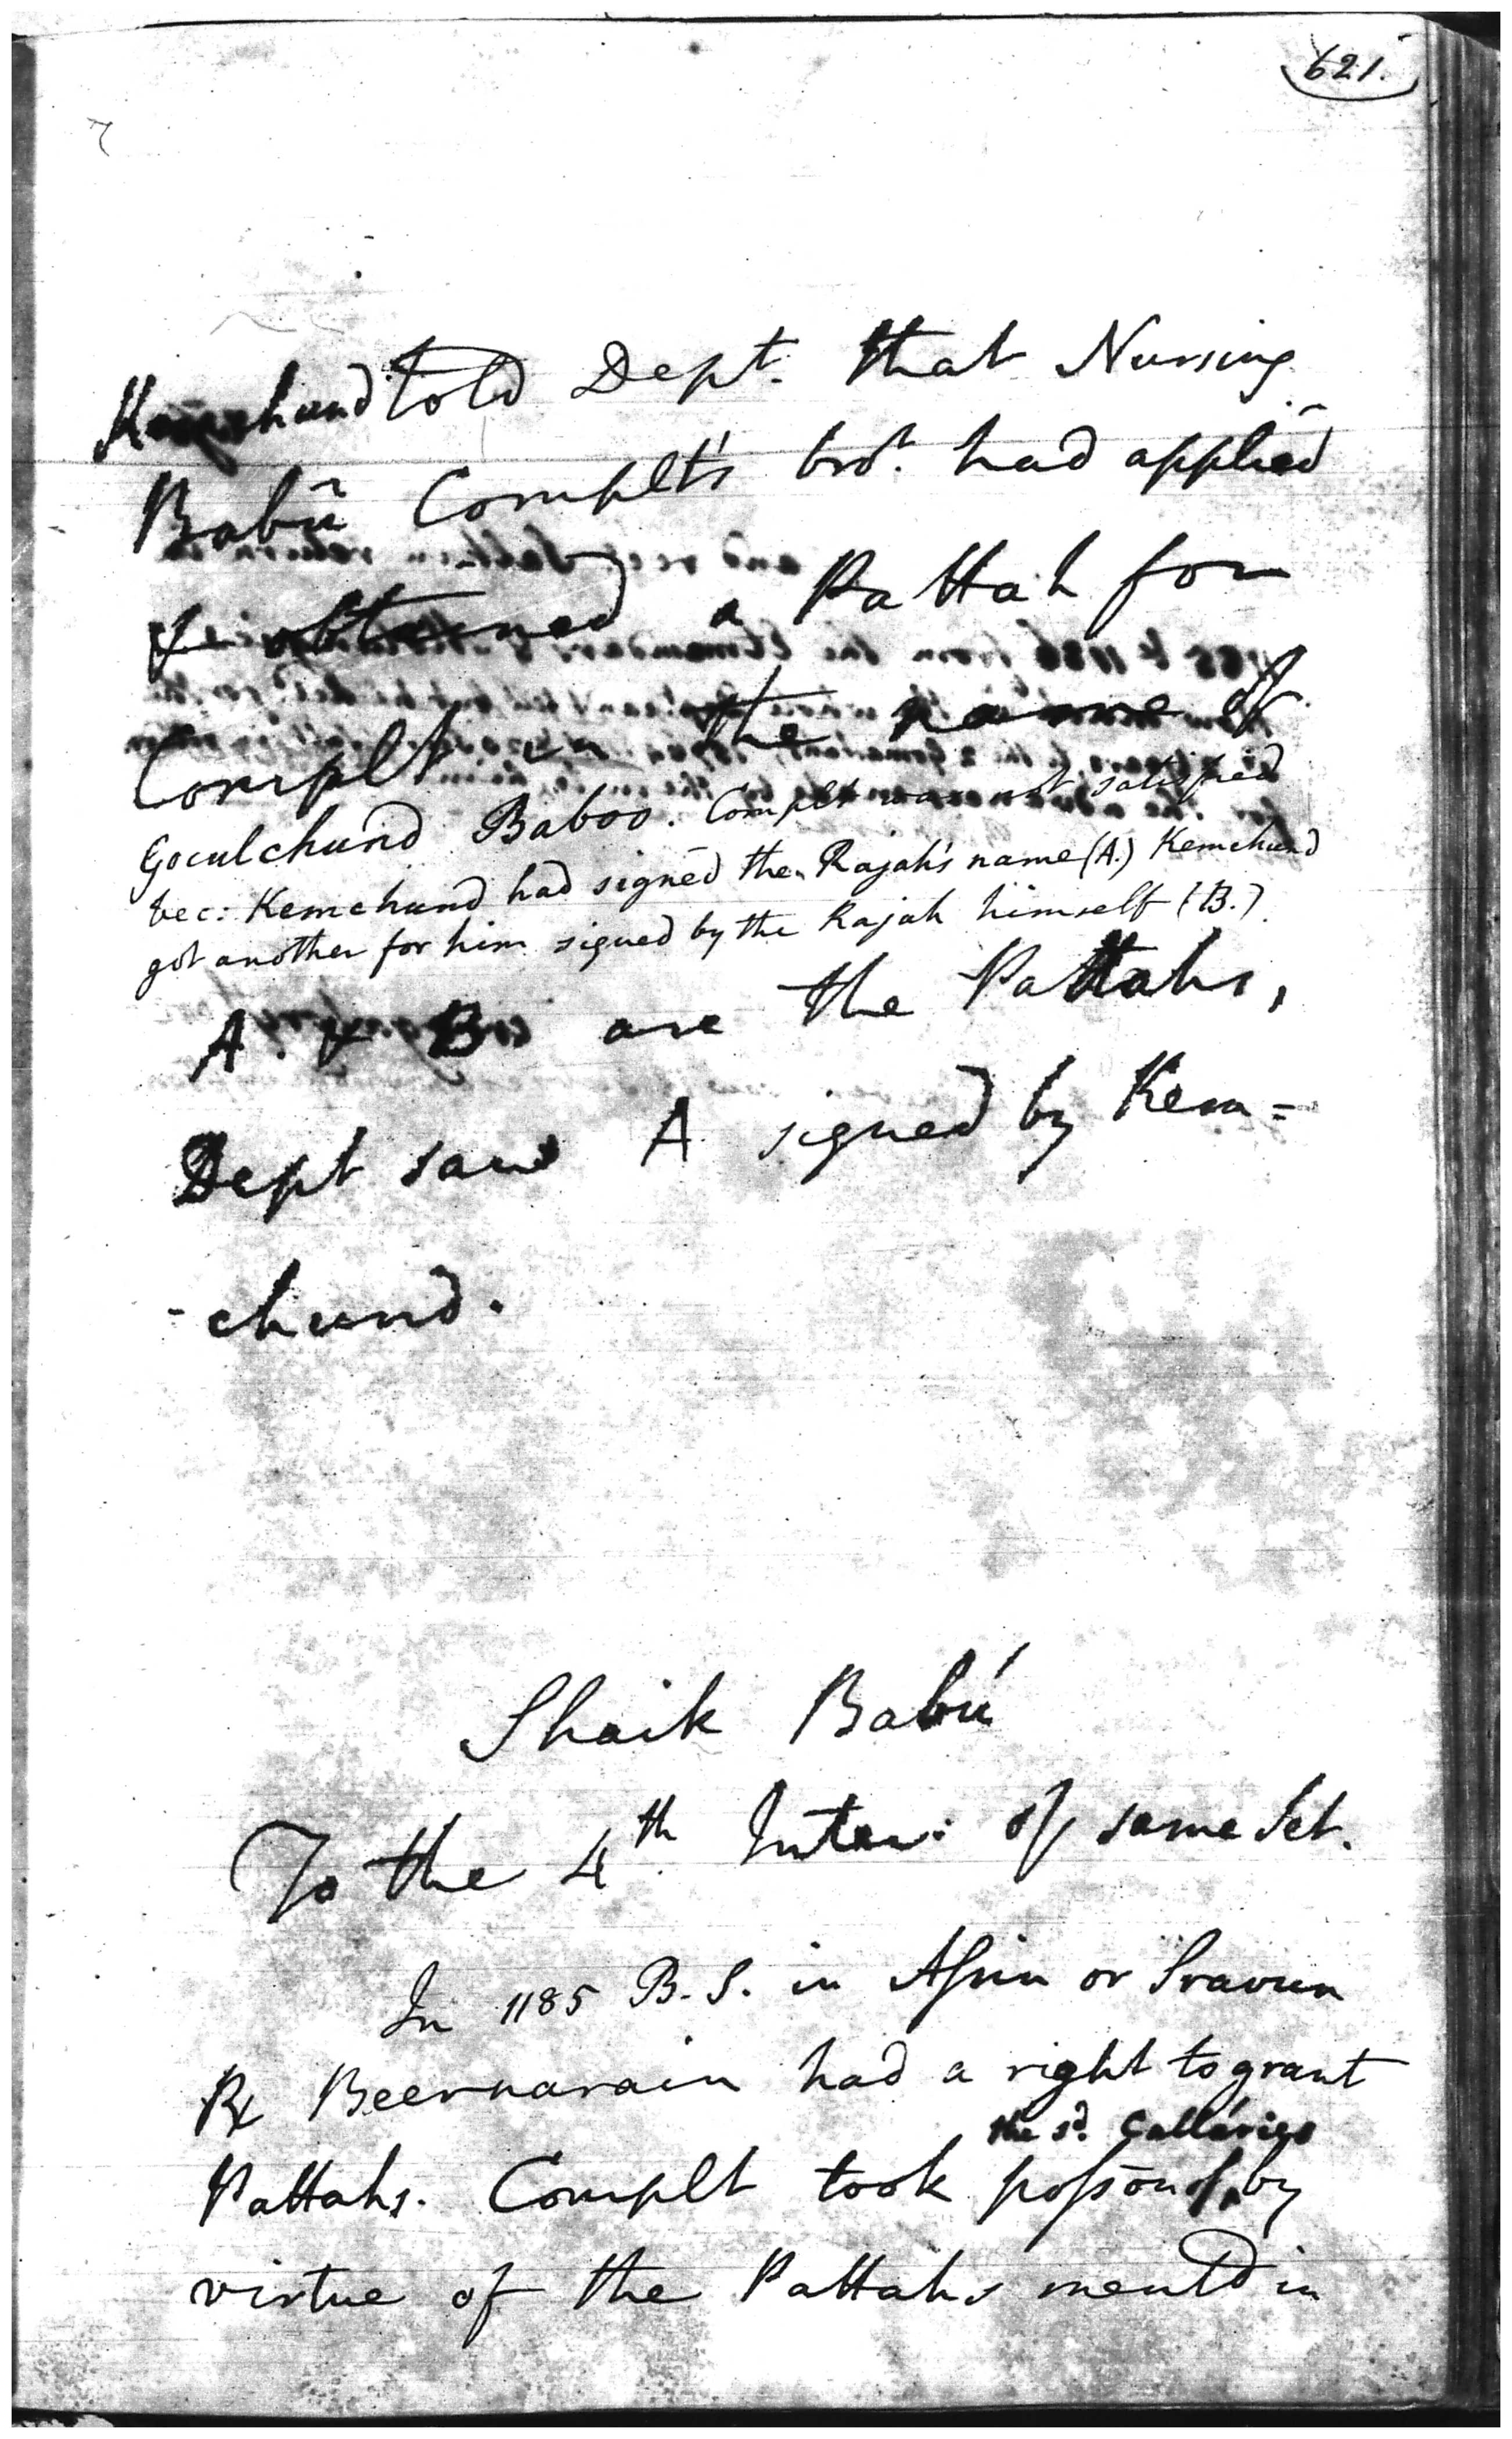 621.
Kemchund told Dept. that Nursing
Babû Complt's bror. had applied
& obtained a Pattah for
Complt in the name of
Goculchund Baboo. Complt was not satisfied
bec: Kemchund had signed the Rajah's name (A.) Kemchund
got another for him signed by the Rajah himself (B.)
A. & B are the Pattahs,
Dept saw A signed by Kem=
-chund.
Shaik Babú
To the 4th Inter: of same Set.
In 1185 B.S. in Assin or Sravun
R Beernarain had a right to grant
the sd. Calláries
Pattahs. Complt took possōn of by
virtue of the Pattahs mentd in